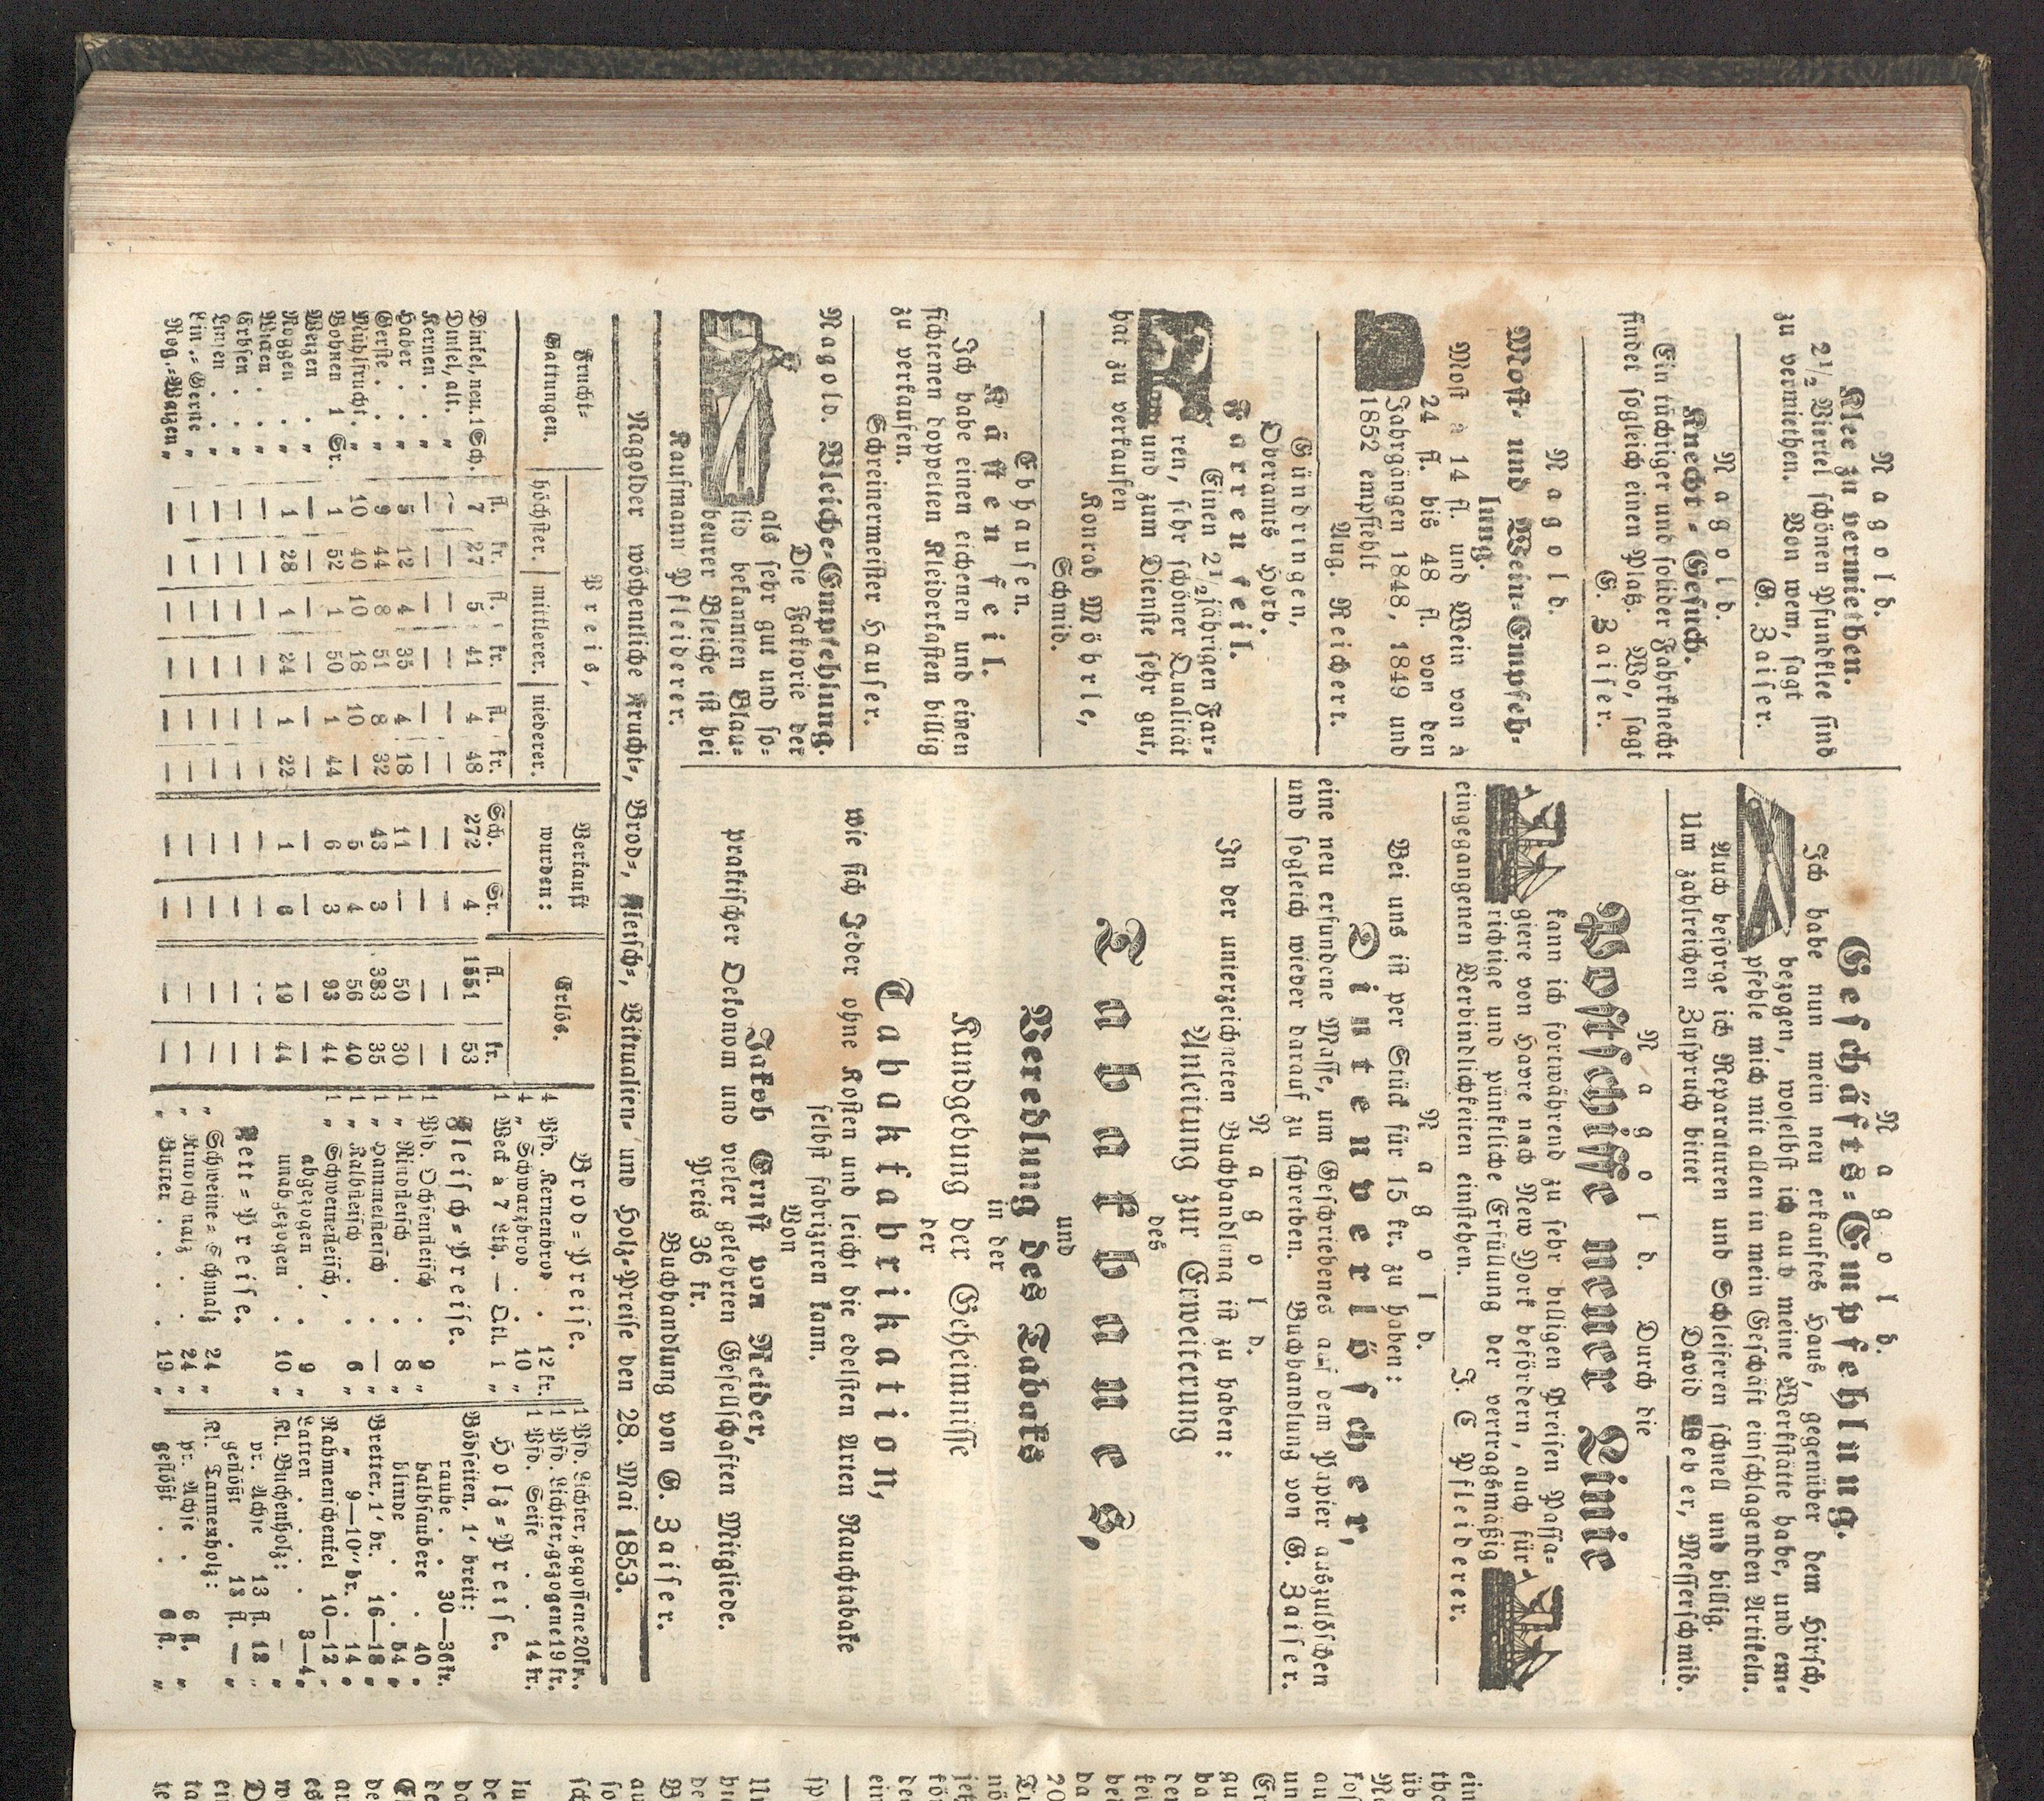 Nagold.
Klee zu vermiethen.
2½ Viertel schönen Pfundklee sind
zu vermiethen. Von wem, sagt
G. Zaiser.
Nagold.
Knecht-Gesuch.
Ein tüchtiger und solider Fahrknecht
findet sogleich einen Platz. Wo, sagt
G. Zaiser.
Nagold.
Most- und Wein-Empfeh-
lung.
Most à 14 fl. und Wein von à
24 fl. bis 48 fl. von den
Jahrgängen 1848, 1849 und
1852 empfiehlt
Aug. Reichert.
Gündringen,
Oberamts Horb.
Farren feil.
Einen 2½jährigen Far-
ren, sehr schöner Qualität
und zum Dienste sehr gut,
hat zu verkaufen
Konrad Möhrle,
Schmid.
Ebhausen.
Kästen feil.
Ich habe einen eichenen und einen
fichtenen doppelten Kleiderkasten billig
zu verkaufen.
Schreinermeister Hauser.
Nagold. Bleiche-Empfehlung.
Die Faktorie der
als sehr gut und so-
lid bekannten Blau-
beurer Bleiche ist bei
Kaufmann Pfleiderer.
Nagold.
Geschäfts-Empfehlung.
Ich habe nun mein neu erkauftes Haus, gegenüber dem Hirsch,
bezogen, woselbst ich auch meine Werkstätte habe, und em-
pfehle mich mit allen in mein Geschäft einschlagenden Artikeln.
Auch besorge ich Reparaturen und Schleifereien schnell und billig.
Um zahlreichen Zuspruch bittet David Weber, Messerschmid.
Nagold. Durch die
Postschiffe neuer Linie
kann ich fortwährend zu sehr billigen Preisen Passa-
giere von Havre nach New York befördern, auch für
richtige und pünktliche Erfüllung der vertragsmäßig
eingegangenen Verbindlichkeiten einstehen. J. C. Pfleiderer.
Nagold.
Bei uns ist per Stück für 15 kr. zu haben:
Dintenverlöscher,
eine neu erfundene Masse, um Geschriebenes auf dem Papier auszulöschen
und sogleich wieder darauf zu schreiben. Buchhandlung von G. Zaiser.
Nagold.
In der unterzeichneten Buchhandlung ist zu haben:
Anleitung zur Erweiterung
des
Tabakbaues,
und
Veredlung des Tabaks
in der
Kundgebung der Geheimnisse
der
Tabakfabrikation,
wie sich Jeder ohne Kosten und leicht die edelsten Arten Rauchtabake
selbst fabriziren kann.
Von
Jakob Ernst von Reider,
praktischer Oekonom und vieler gelehrten Gesellschaften Mitgliede.
Preis 36 kr.
Buchhandlung von G. Zaiser.
Nagolder wöchentliche Frucht-, Brod-, Fleisch-, Viktualien- und Holz-Preise den 28. Mai 1853.
Frucht-Gattungen. Preis, Verkauft wurden: Erlös.
höchster. mittlerer. niederer.
fl. kr. fl. kr. fl. kr. Sch. Sr. fl. kr.
Dinkel, neu. 1 Sch. 7 27 5 41 4 48 272 4 1551 53
Dinkel, alt. „ — — — — — — — — — —
Kernen . „ — — — — — — — — — —
Haber . . „ 5 12 4 35 4 18 11 — 50 30
Gerste . . „ 9 44 8 51 8 32 43 3 383 35
Mühlfrucht. „ 10 40 10 18 10 — 5 4 56 40
Bohnen 1 Sr. 1 52 1 50 1 44 6 3 93 44
Weizen . „ — — — — — — — — — —
Roggen . „ 1 28 1 24 1 22 1 6 19 44
Wicken . „ — — — — — — — — — —
Erbsen . „ — — — — — — — — — —
Linsen . „ — — — — — — — — — —
Lin.-Gerste „ — — — — — — — — — —
Rog.-Waizen „ — — — — — — — — — —
Brod-Preise.
4 Pfd. Kernenbrod . 12 kr.
4 „ Schwarzbrod . 10 „
1 Weck à 7 Lth. — Qtl. 1 „
Fleisch-Preise.
1 Pfd. Ochsenfleisch . 9 „
1 „ Rindfleisch . 8 „
1 „ Hammelfleisch . — „
1 „ Kalbfleisch . 6 „
1 „ Schweinefleisch,
abgezogen . 9 „
unabgezogen . 10 „
Fett-Preise.
„ Schweine-Schmalz 24 „
„ Rindschmalz . 24 „
„ Butter . . . 19 „
1 Pfd. Lichter, gegossene 20 kr.
1 Pfd. Lichter, gezogene 19 kr.
1 Pfd. Seife . . 14 kr.
Holz-Preise.
Bödseiten, 1' breit:
rauhe . . 30—36 kr.
halbsaubere . 40 „
blinde . . . 54 „
Bretter, 1' br. 16—18 „
„ 9—10'' br. . 14 „
Rahmenschenkel 10—12 „
Latten . . . 3—4 „
Kl. Buchenholz:
pr. Achse 13 fl. 12 „
geflößt . 18 fl. — „
Kl. Tannenholz:
pr. Achse . 6 fl. „
geflößt . . 6 fl. „